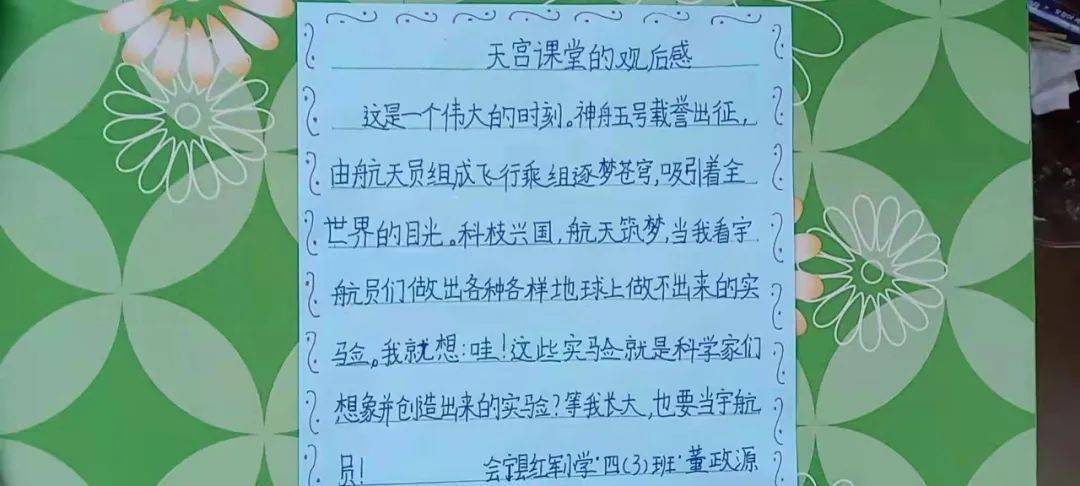 天宫课堂的观后感
这是一个伟大的时刻。神舟五号载誉出征，
由航天员组成飞行乘组逐梦苍穹，吸引着全
世界的目光。科技兴国，航天筑梦，当我看宇
航员们做出各种各样地球上做不出来的实
验。我就想：哇！这些实验就是科学家们
想象并创造出来的实验？等我长大，也要当宇航
员！ 会宁县红军小学·四(3)班·董政源